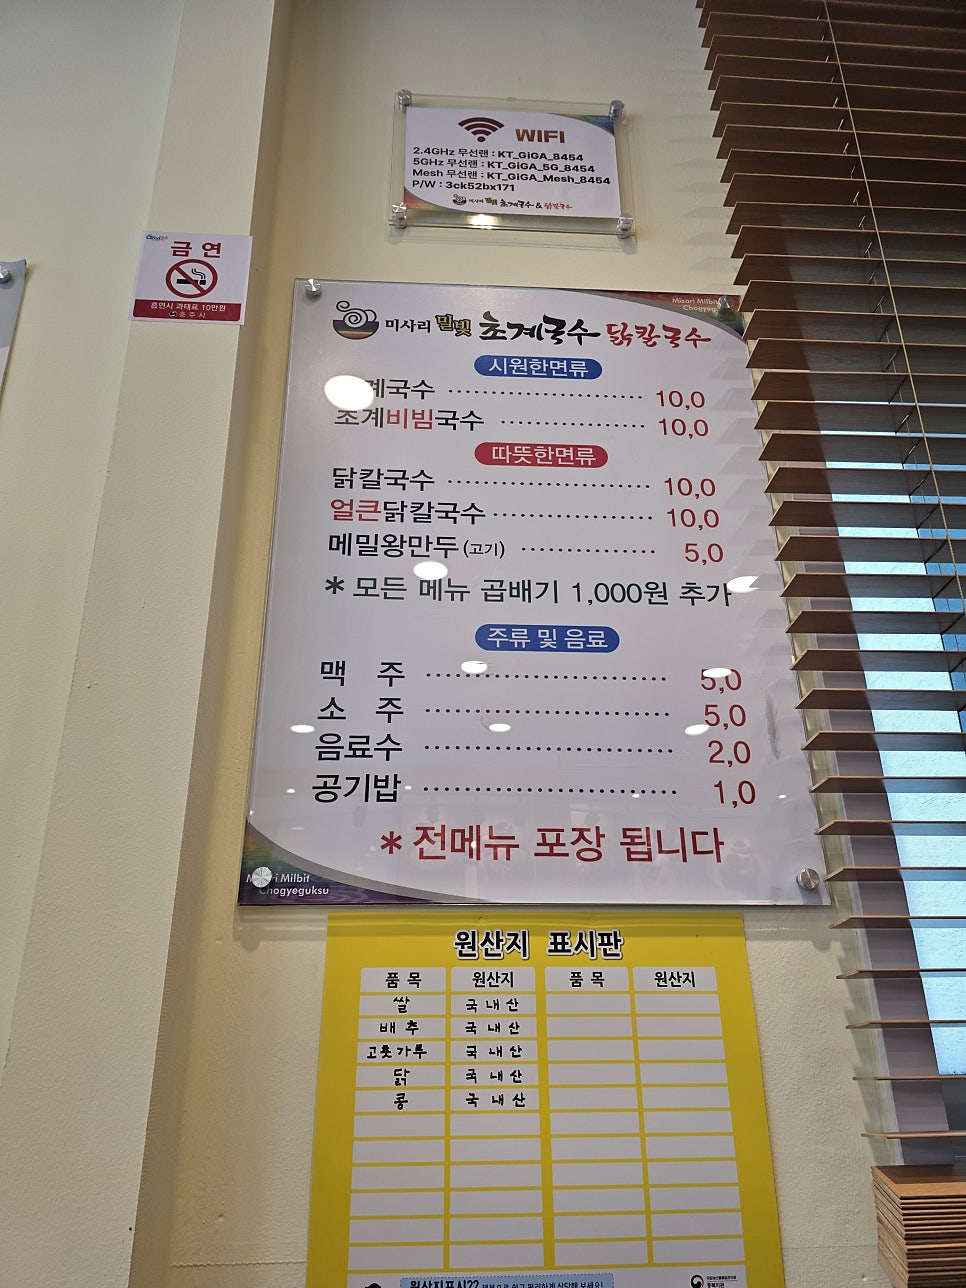 WIFI
2.4GHz 무선랜 : KT_GiGA_8454
5GHz 무선랜 : KT_GiGA_5G_8454
Mesh 무선랜 : KT_GiGA_Mesh_8454
P/W : 3ck52bx171
미사리 밀빛 초계국수 & 닭칼국수
금 연
흡연시 과태료 10만원
충 주 시
Misari Milbit
Chogyeg
미사리 밀빛 초계국수 닭칼국수
시원한면류
계국수 10,0
초계비빔국수 10,0
따뜻한면류
닭칼국수 10,0
얼큰닭칼국수 10,0
메밀왕만두(고기) 5,0
* 모든 메뉴 곱배기 1,000원 추가
주류 및 음료
맥 주 5,0
소 주 5,0
음료수 2,0
공기밥 1,0
* 전메뉴 포장 됩니다
Milbit
Chogyeguksu
원산지 표시판
품 목 원산지 품 목 원산지
쌀 국내산
배추 국내산
고춧가루 국내산
닭 국내산
콩 국내산
원산지표시??